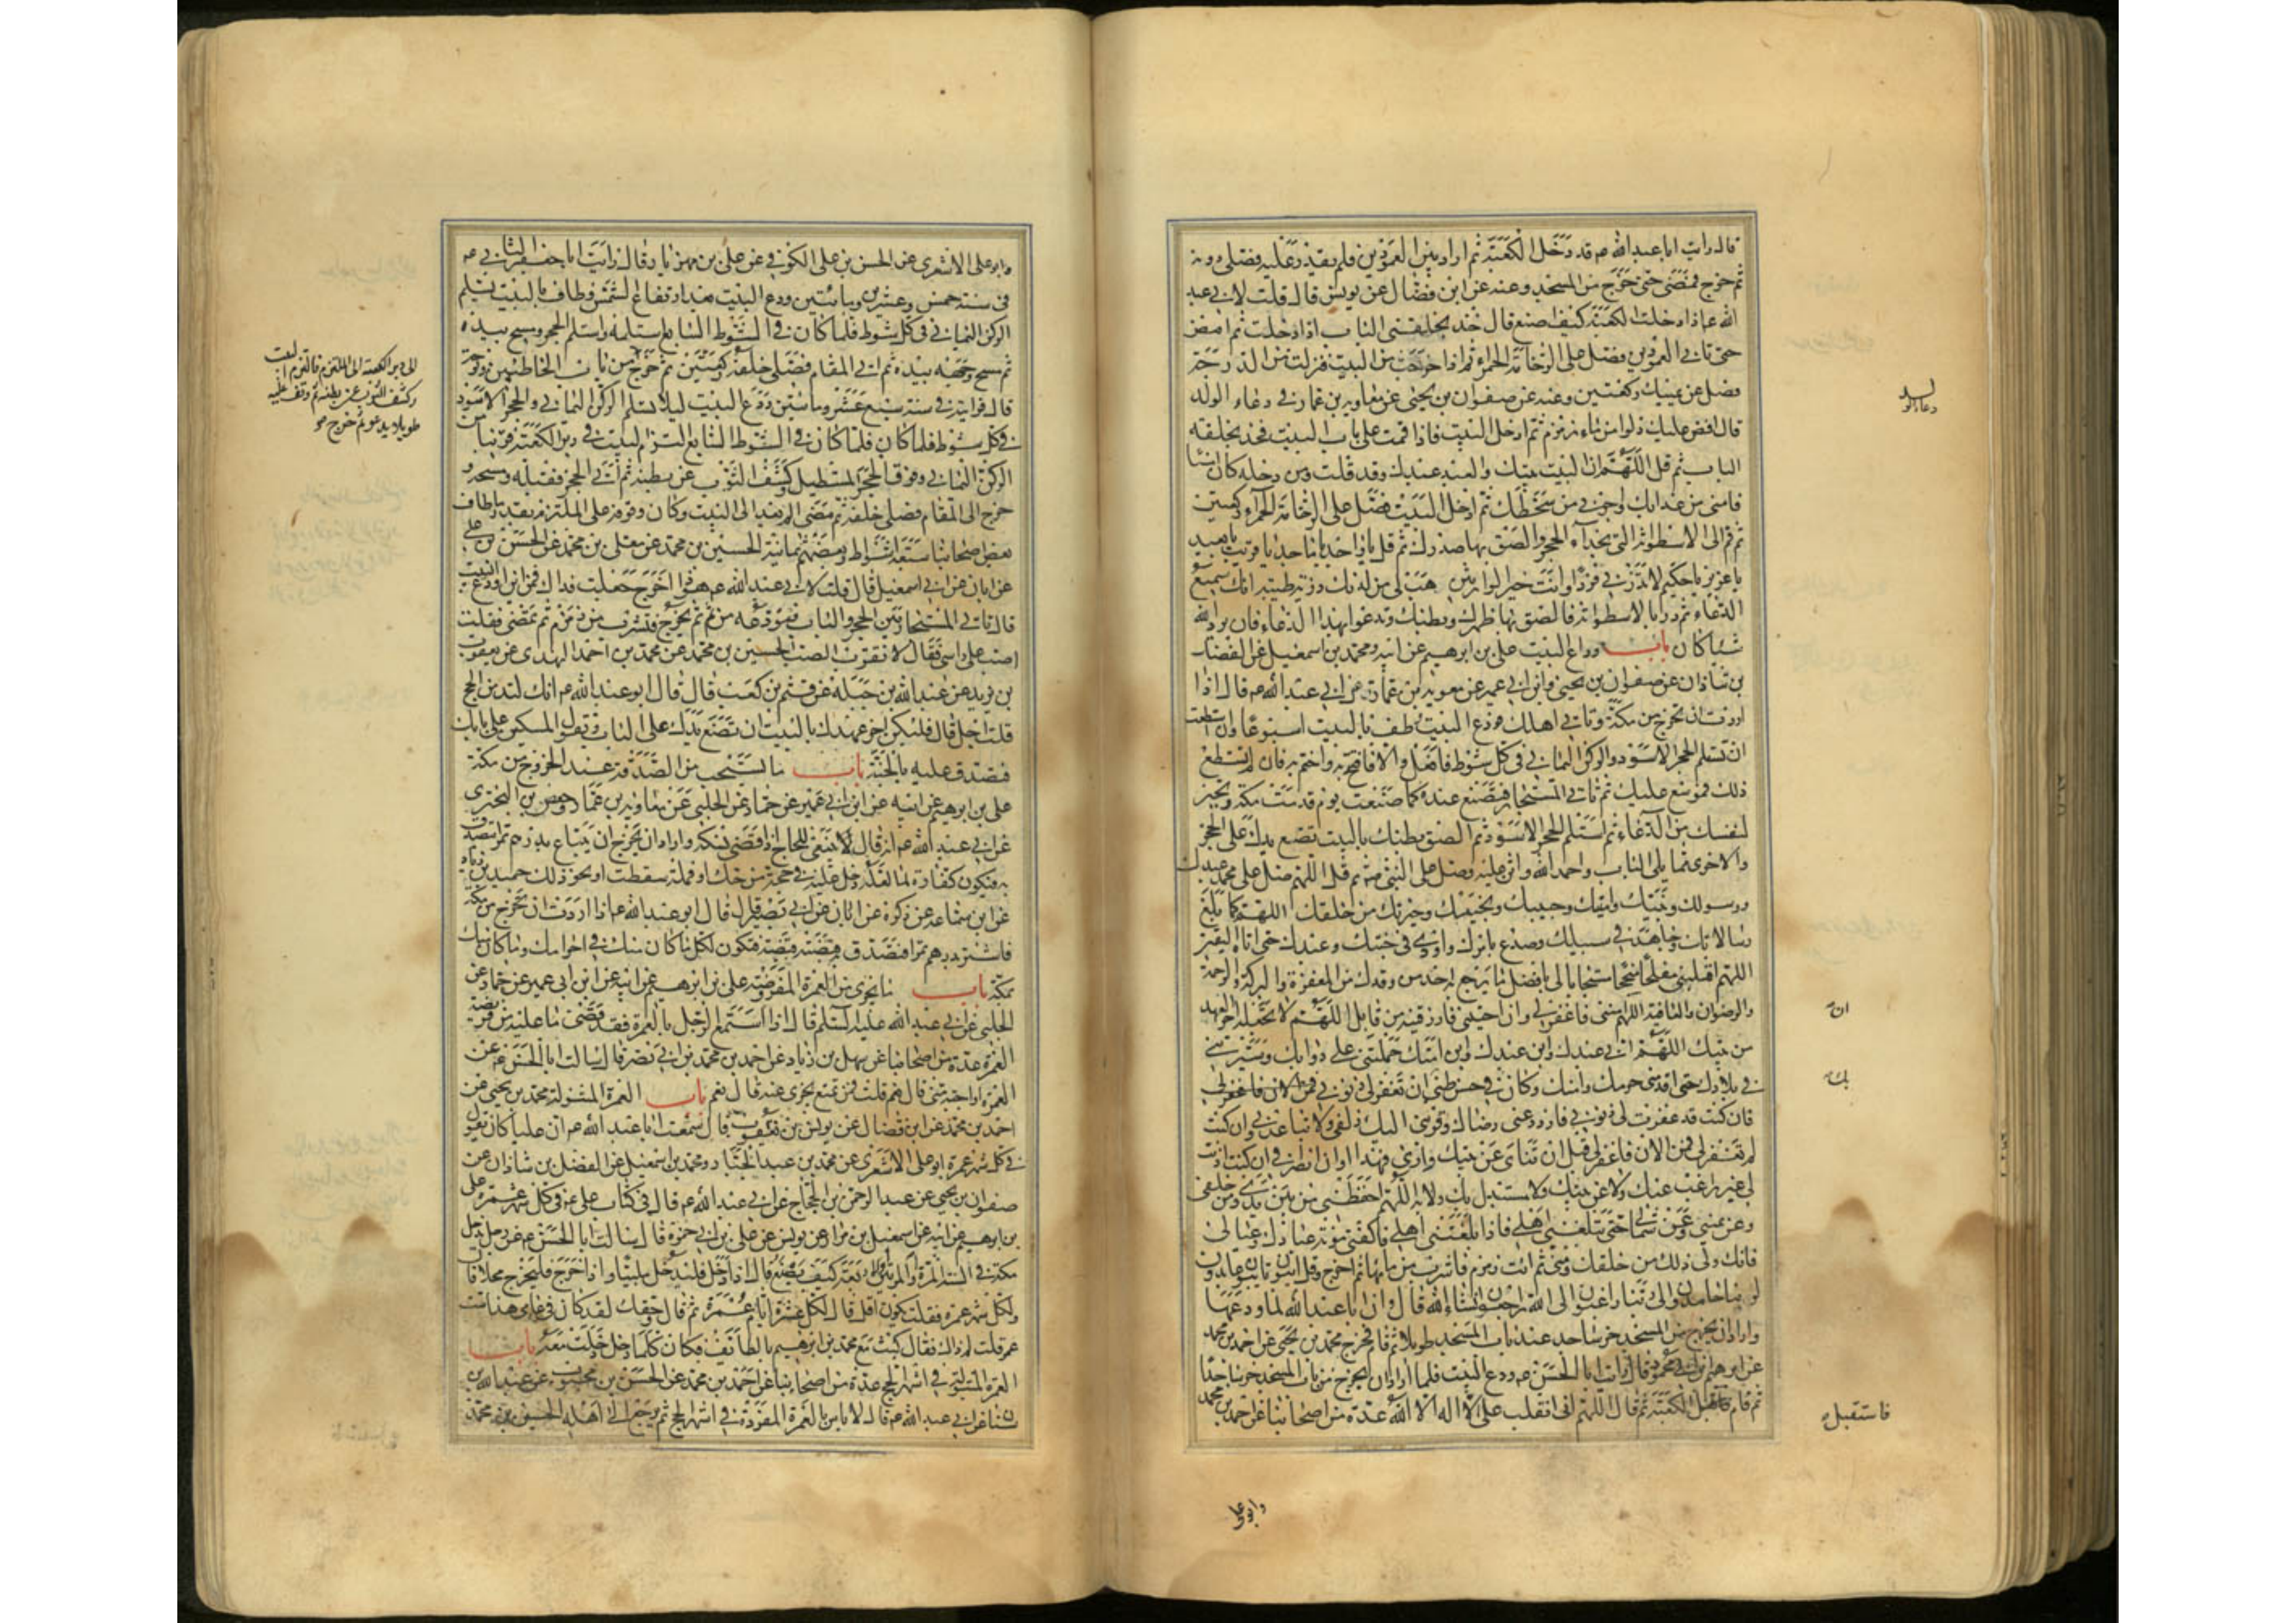 قال رايت ابا عبد الله ع قد دخل الكعبة ثم اراد بين العمودين فلم يقدر عليه فصلى دونه
ثم خرج فمضى حتى خرج من المسجد وعنه عن ابن فضال عن يونس قال قلت لابي عبد
الله ع اذا دخلت الكعبة كيف اصنع قال خذ بحلقتي الباب اذا دخلت ثم امض
حتى تاتي العمودين فصل على الرخامة الحمراء ثم اذا خرجت من البيت فنزلت من الدرجة
فصل عن يمينك ركعتين وعنه عن صفوان بن يحيى عن معاوية بن عمار في دعاء الولد
قال افض عليك دلوا من ماء زمزم ثم ادخل البيت فاذا قمت على باب البيت فخذ بحلقة
الباب ثم قل اللهم ان البيت بيتك والعبد عبدك وقد قلت ومن دخله كان امنا
فامني من عذابك واجرني من سخطك ثم ادخل البيت فصل على الرخامة الحمراء ركعتين
ثم قم الى الاسطوانة التي بحذاء الحجر والصق بها صدرك ثم قل يا واحد يا ماجد يا قريب يا بعيد
يا عزيز يا حكيم لا تذرني فردا وانت خير الوارثين هب لي من لدنك ذرية طيبة انك سميع
الدعاء ثم در بالاسطوانة فالصق بها ظهرك وبطنك وتدعو بهذا الدعاء فان يرد الله
شيئا كان باب وداع البيت علي بن ابرهيم عن ابيه ومحمد بن اسمعيل عن الفضل
بن شاذان عن صفوان بن يحيى وابن ابي عمير عن معوية بن عمار عن ابي عبد الله ع قال اذا
اردت ان تخرج من مكة وتاتي اهلك فودع البيت وطف بالبيت اسبوعا وان استطعت
ان تستلم الحجر الاسود والركن اليماني في كل شوط فافعل والا فافتتح به واختم به فان لم تستطع
ذلك فموسع عليك ثم تاتي المستجار فتصنع عنده كما صنعت يوم قدمت مكة وتخير
لنفسك من الدعاء ثم استلم الحجر الاسود ثم الصق بطنك بالبيت تضع يدك على الحجر
والاخرى مما يلي الباب واحمد الله واثن عليه وصل على النبي ثم قل اللهم صل على محمد عبدك
ورسولك ونبيك وامينك وحبيبك ونجيبك وخيرتك من خلقك اللهم كما بلغ
رسالاتك وجاهد في سبيلك وصدع بامرك واوذي في جنبك وعبدك حتى اتاه اليقين
اللهم اقلبني مفلحا منجحا مستجابا لي بافضل ما يرجع به احد من وفدك من المغفرة والبركة والرحمة
والرضوان والعافية اللهم امتني فاغفر لي وان احييتني فارزقنيه من قابل اللهم لا تجعله اخر العهد
من بيتك اللهم اني عبدك وابن عبدك وابن امتك حملتني على دوابك وسيرتني
في بلادك حتى اقدمتني حرمك وامنك وكان في حسن ظني ان تغفر لي ذنوبي فمن الان فاغفر لي
فان كنت قد غفرت لي ذنوبي فازدد عني رضا وقربني اليك زلفى ولا تباعدني وان كنت
لم تغفر لي فمن الان فاغفر لي قبل ان تناى عن بيتك داري فهذا اوان انصرافي ان كنت اذنت
لي غير راغب عنك ولا عن بيتك ولا مستبدل بك ولا به اللهم احفظني من بين يدي ومن خلفي
وعن يميني وعن شمالي حتى تبلغني اهلي فاذا بلغتني اهلي فاكفني مؤنة عبادك وعيالي
فانك ولي ذلك من خلقك ومني ثم ائت زمزم فاشرب من مائها ثم اخرج وقل ائبون تائبون عابدون
لربنا حامدون الى ربنا راغبون الى الله راجعون انشاء الله قال وان ابا عبد الله لما ودعها
واراد ان يخرج من المسجد خر ساجدا عند باب المسجد طويلا ثم قام فخرج محمد بن يحيى عن احمد بن محمد
عن ابرهيم بن ابي محمود قال رايت ابا الحسن ع ودع البيت فلما اراد ان يخرج من باب المسجد خر ساجدا
ثم قام فاستقبل الكعبة ثم قال اللهم اني انقلب على لا اله الا الله عدة من اصحابنا عن احمد بن محمد
دعاء الولد
ان
بك
فاستقبل
وابو علي
وابو علي الاشعري عن الحسن بن علي الكوفي عن علي بن مهزيار قال رايت ابا جعفر الثاني ع
في سنة خمس وعشرين ومائتين ودع البيت بعد ارتفاع الشمس وطاف بالبيت يستلم
الركن اليماني في كل شوط فلما كان في الشوط السابع استلمه واستلم الحجر ومسح بيده
ثم مسح وجهه بيده ثم اتى المقام فصلى خلفه ركعتين ثم خرج
قال فرايته في سنة سبع عشر ومائتين ودع البيت ليلا يستلم الركن اليماني والحجر الاسود
في كل شوط فلما كان فلما كان في الشوط السابع التزم البيت في دبر الكعبة قريبا من
الركن اليماني وفوق الحجر المستطيل وكشف الثوب عن بطنه ثم اتى الحجر فقبله ومسحه و
خرج الى المقام فصلى خلفه ثم مضى ولم يعد الى البيت وكان وقوفه على الملتزم بقدر ما طاف
بعض اصحابنا سبعة اشواط وبعضهم ثمانية الحسين بن محمد عن معلى بن محمد عن الحسن بن علي
عن ابان عن ابي اسمعيل قال قلت لابي عبد الله ع هو ذا اخرج جعلت فداك فمن اين اودع البيت
قال تاتي المستجار بين الحجر والباب فتودعه من ثم ثم تخرج فتشرب من زمزم ثم تمضي فقلت
اصب على راسي فقال لا تقرب الصب الحسين بن محمد عن محمد بن احمد النهدي عن يعقوب
بن يزيد عن عبد الله بن جبلة عن قثم بن كعب قال قال ابو عبد الله ع انك لتدمن الحج
قلت اجل قال فليكن اخر عهدك بالبيت ان تضع يدك على الباب وتقول المسكين على بابك
فتصدق عليه بالجنة باب ما يستحب من الصدقة عند الخروج من مكة
علي بن ابرهيم عن ابيه عن ابن ابي عمير عن حماد عن الحلبي عن معاوية بن عمار وحفص بن البختري
عن ابي عبد الله ع انه قال لا ينبغي للحاج اذا قضى نسكه واراد ان يخرج ان يبتاع بدرهم تمرا يتصدق
به فيكون كفارة لما لعله دخل عليه في حجه من حك او قملة سقطت او نحو ذلك حميد بن زياد
عن ابن سماعة عن ذكره عن ابان عن ابي بصير قال قال ابو عبد الله ع اذا اردت ان تخرج من مكة
فاشتر بدرهم تمرا فتصدق به قبضة قبضة فيكون لكل ما كان منك في احرامك وما كان منك
بمكة باب ما يجزي من العمرة المفروضة علي بن ابرهيم عن ابيه عن ابن ابي عمير عن حماد عن
الحلبي عن ابي عبد الله عليه السلم قال اذا استمتع الرجل بالعمرة فقد قضى ما عليه من فريضة
العمرة عدة من اصحابنا عن سهل بن زياد عن احمد بن محمد بن ابي نصر قال سالت ابا الحسن ع عن
العمرة اواجبة هي قال نعم قلت فمن تمتع يجزي عنه قال نعم باب العمرة المبتولة محمد بن يحيى عن
احمد بن محمد عن ابن فضال عن يونس بن يعقوب قال سمعت ابا عبد الله ع ان عليا كان يقول
في كل شهر عمرة ابو علي الاشعري عن محمد بن عبد الجبار ومحمد بن اسمعيل عن الفضل بن شاذان عن
صفوان بن يحيى عن عبد الرحمن بن الحجاج عن ابي عبد الله ع قال في كتاب علي ع في كل شهر عمرة علي
بن ابرهيم عن ابيه عن اسمعيل بن مرار عن يونس عن علي بن ابي حمزة قال سالت ابا الحسن ع عن رجل يدخل
مكة في السنة المرة والمرتين والاربعة كيف يصنع قال اذا دخل فليدخل ملبيا واذا خرج فليخرج محلا قال
ولكل شهر عمرة فقلت يكون اقل قال لكل عشرة ايام عمرة ثم قال وحقك لقد كان في عامي هذه السنة ست
عمر قلت لم ذاك فقال كنت مع محمد بن ابرهيم بالطائف فكان كلما دخل دخلت معه باب
العمرة المبتولة في اشهر الحج عدة من اصحابنا عن احمد بن محمد عن الحسن بن محبوب عن عبد الله بن
سنان عن ابي عبد الله ع قال لا باس بالعمرة المفردة في اشهر الحج ثم يرجع الى اهله الحسين بن محمد
الى دبر الكعبة الى الملتزم فالتزم البيت
وكشف الثوب عن بطنه ثم وقف عليه
طويلا يدعو ثم خرج